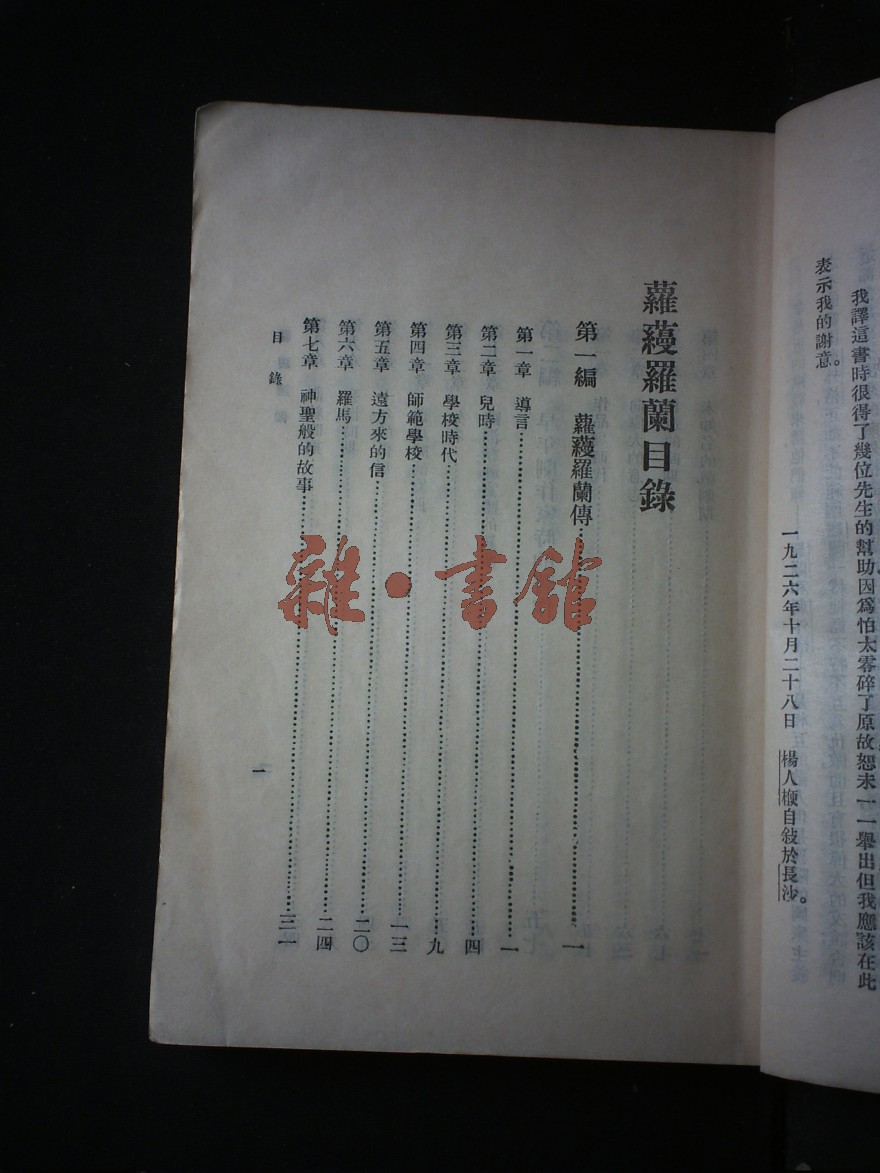 我譯這書時很得了幾位先生的幫助因爲怕太零碎了原故恕未一一舉出但我應該在此
表示我的謝意。
一九二六年十月二十八日 楊人楩自敍於長沙。
蘿蔓羅蘭目錄
第一編 蘿蔓羅蘭傳……一
第一章 導言……一
第二章 兒時……四
第三章 學校時代……九
第四章 師範學校……一三
第五章 遠方來的信……二〇
第六章 羅馬……二四
第七章 神聖般的故事……三一
目錄
一
雜·書館